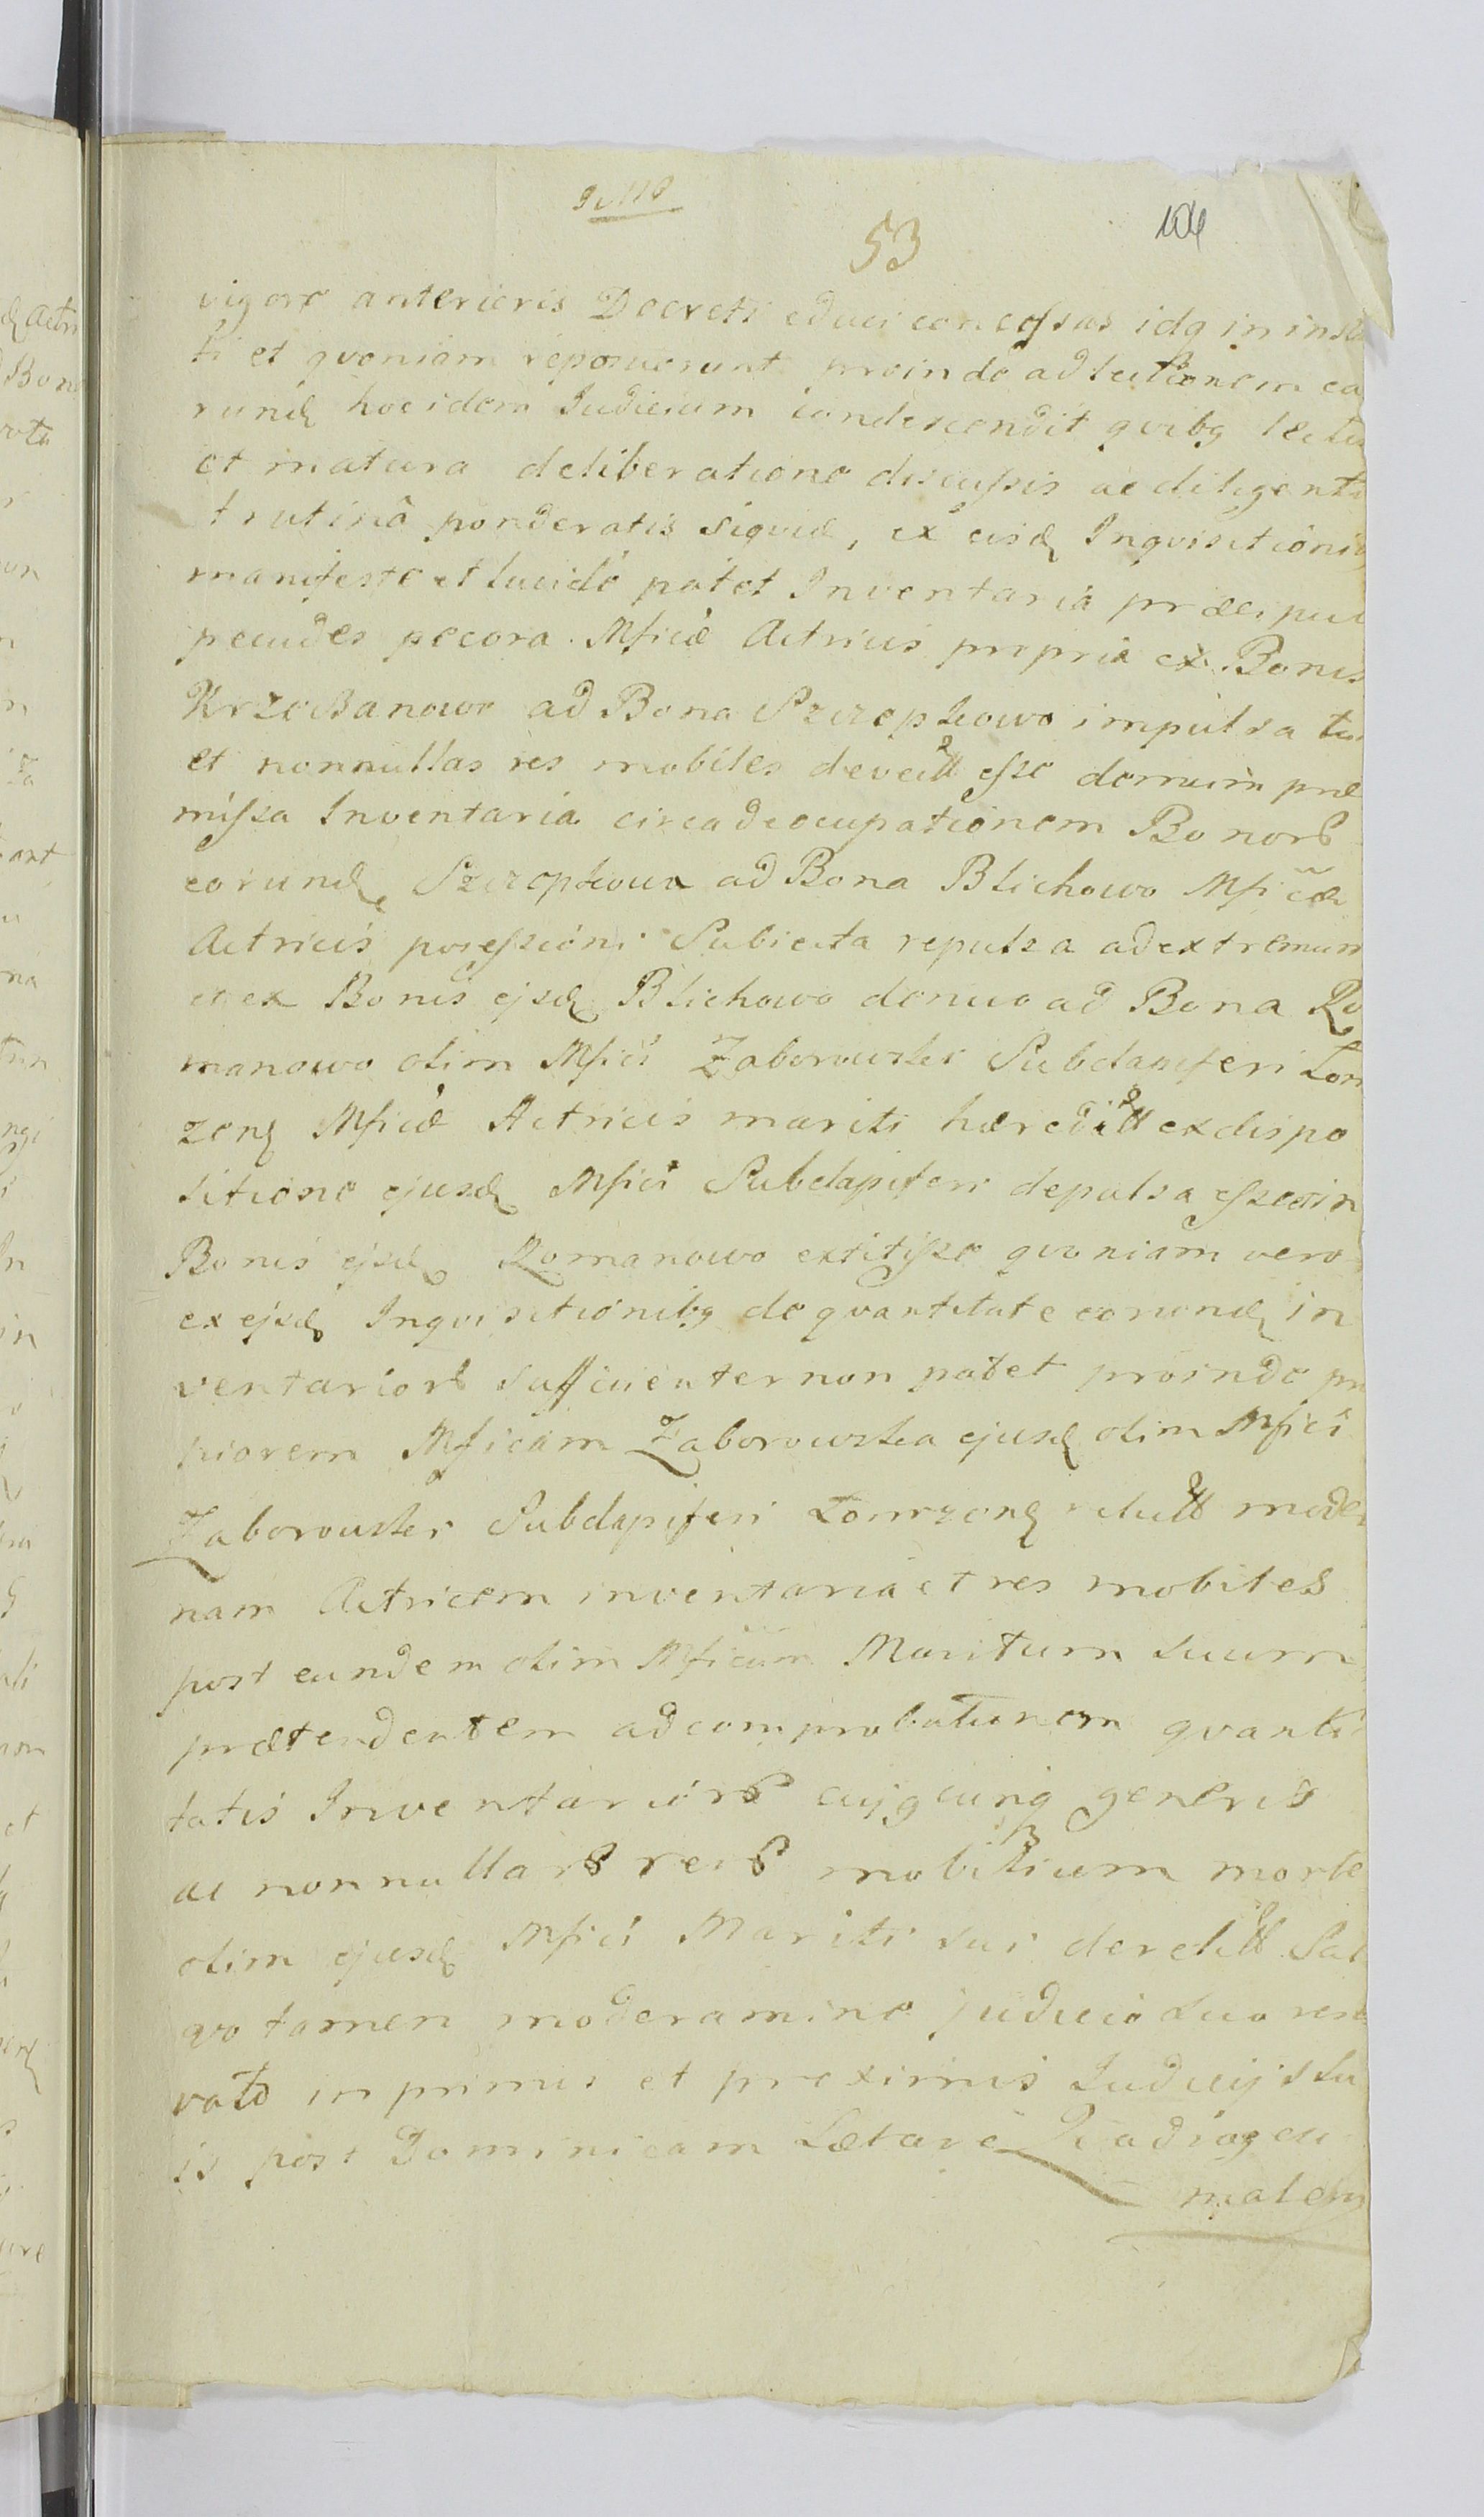 53
104
vigore anterioris Decreti educi concessas idq in insta
ti et quoniam reposuerunt proinde ad lectionem ea
rund hoc idem Iudicium condescendit quibq lectis
et matura deliberatione discussis ac diligenti
trutinâ ponderatis siquid, ex eisd Inquisitionib
manifeste et lucide patet Inventaria præcipue
pecudes pecora Mficæ Actricis propria ex Bonis
Krzcikanowo ad Bona Szczepkowo impulsa tu
et nonnullas res mobiles devect esse demum præ
missa Inventaria circa deocupationem Bonor
eorund Szczepkowo ad Bona Blichowo Mficæ
Actricis possessioni Subiecta repulsa ad extremum
et ex Bonis ejsd Blichowo denuo ad Bona Ro
manowo olim Mfici Zaborowski Subdapiferi Lom
zen Mficæ Actricis mariti hæredit ex dispo
sitione ejusd Mfici Subdapiferi depulsa esse in
Bonis ejsd Romanowo extitisse quoniam vero
ex ejsd Inquisitionibq de quantitate eorund in
ventarior sufficienter non patet proinde pro
piorem Mficam Zaborowska ejusd olim Mfici
Zaborowski Subdapiferi Lomzen relict moder
nam Actricem inventaria et res mobiles
post eundem olim Mficum Maritum suum
prætendentem ad comprobationem quanti
tatis Inventarior cujqcunq generis
ac nonnullar rer mobilium morte
olim ejusd Mfici Mariti sui derelict Sal
vo tamen moderamine judicio suo reser
vato in primis et proximis Iudicijs su
is post Dominicam Lætare Quadrages
malem